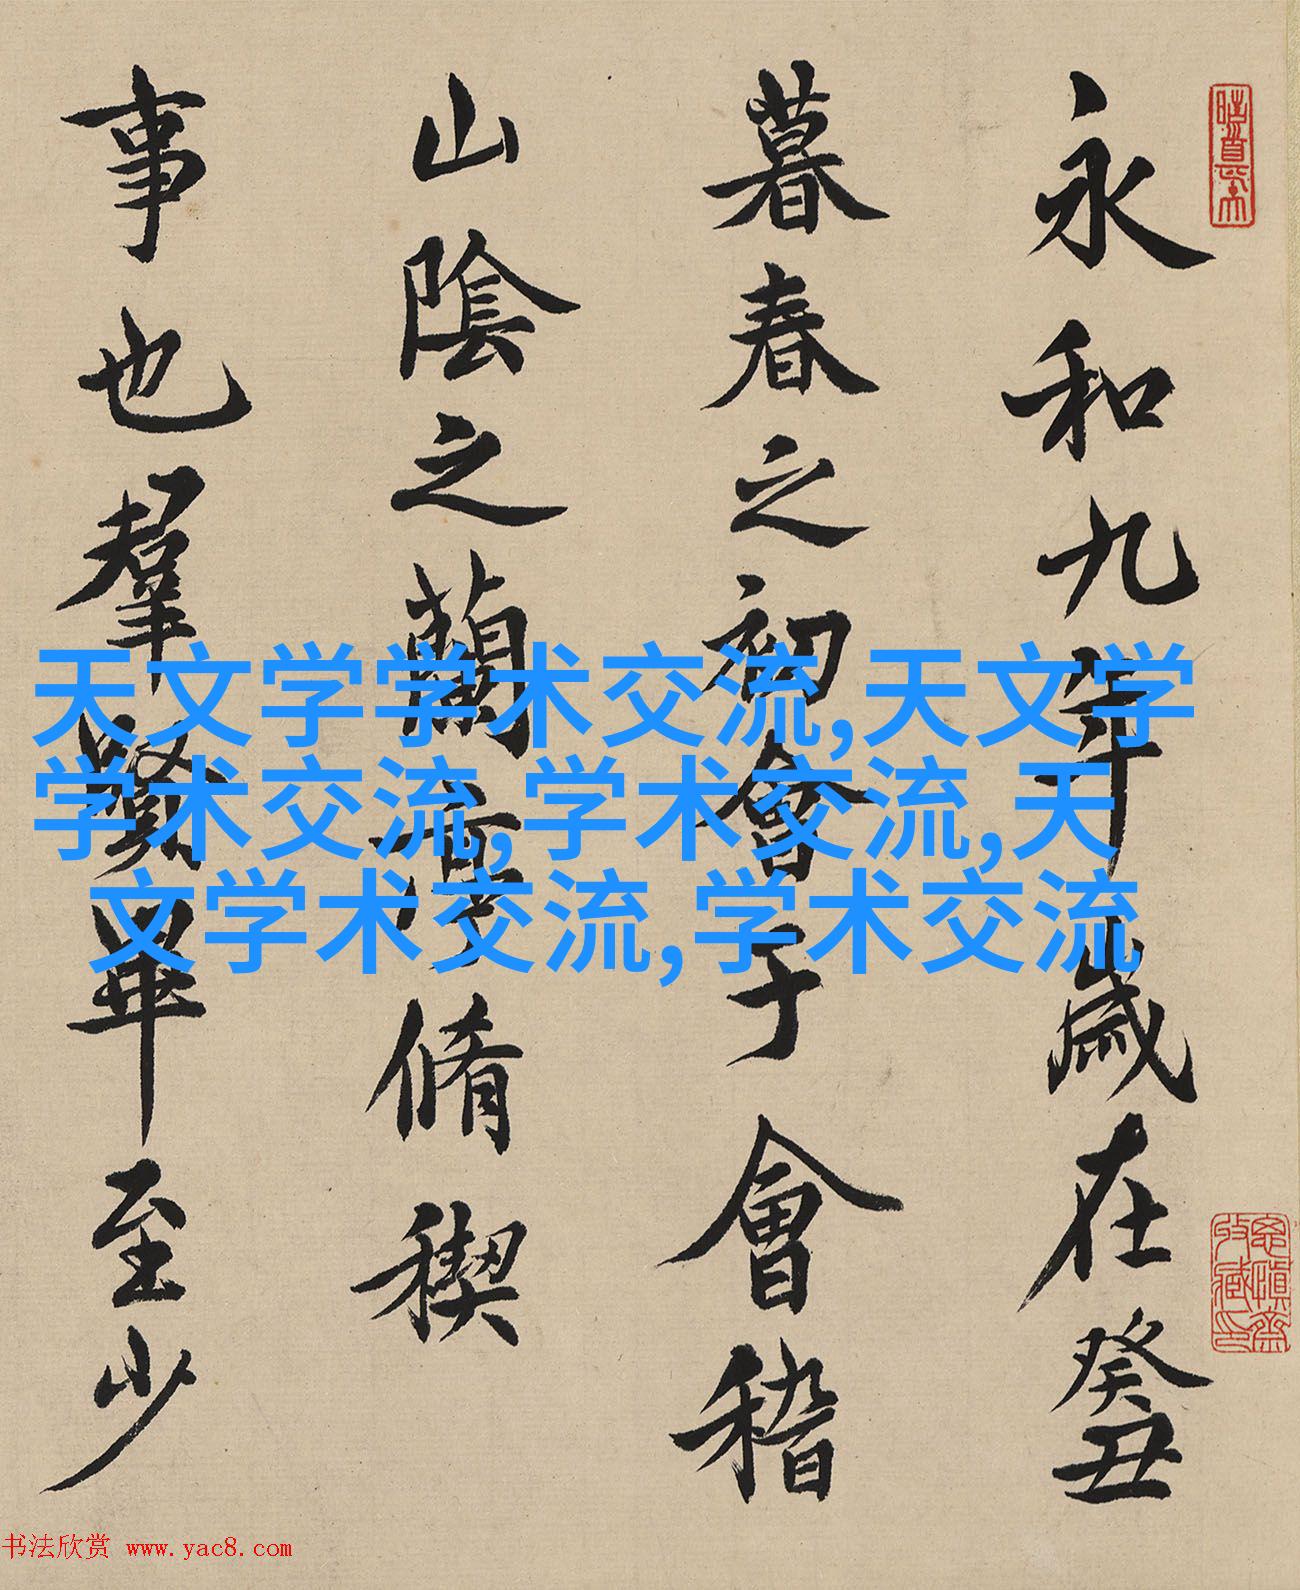 永和九年歲在癸丑
暮春之初會于會稽
山陰之蘭亭脩稧
事也羣賢畢至少
天文学学术交流,天文学
学术交流,学术交流,天
文学术交流,学术交流
书法欣赏 www.yac8.com